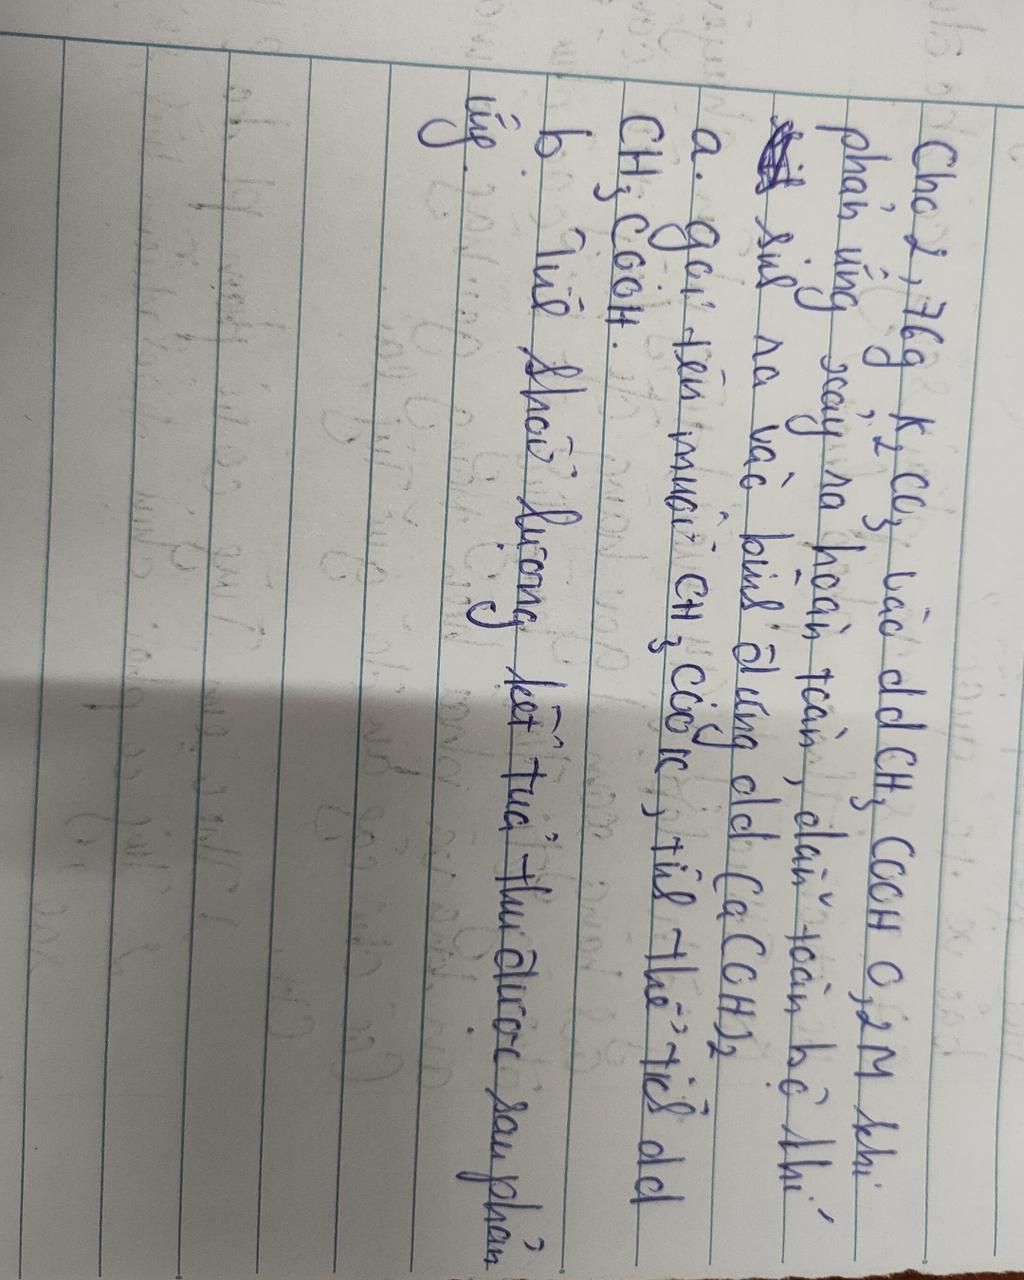 Cho 2,76g K2CO3 vào dd CH3COOH 0,2M khi
phản ứng xảy ra hoàn toàn, dẫn toàn bộ khí
sinh ra vào bình đựng dd Ca(OH)2
a. gọi tên muối CH3COOK, tính thể tích dd
CH3COOH.
b. Tính khối lượng kết tủa thu được sau phản
ứng.